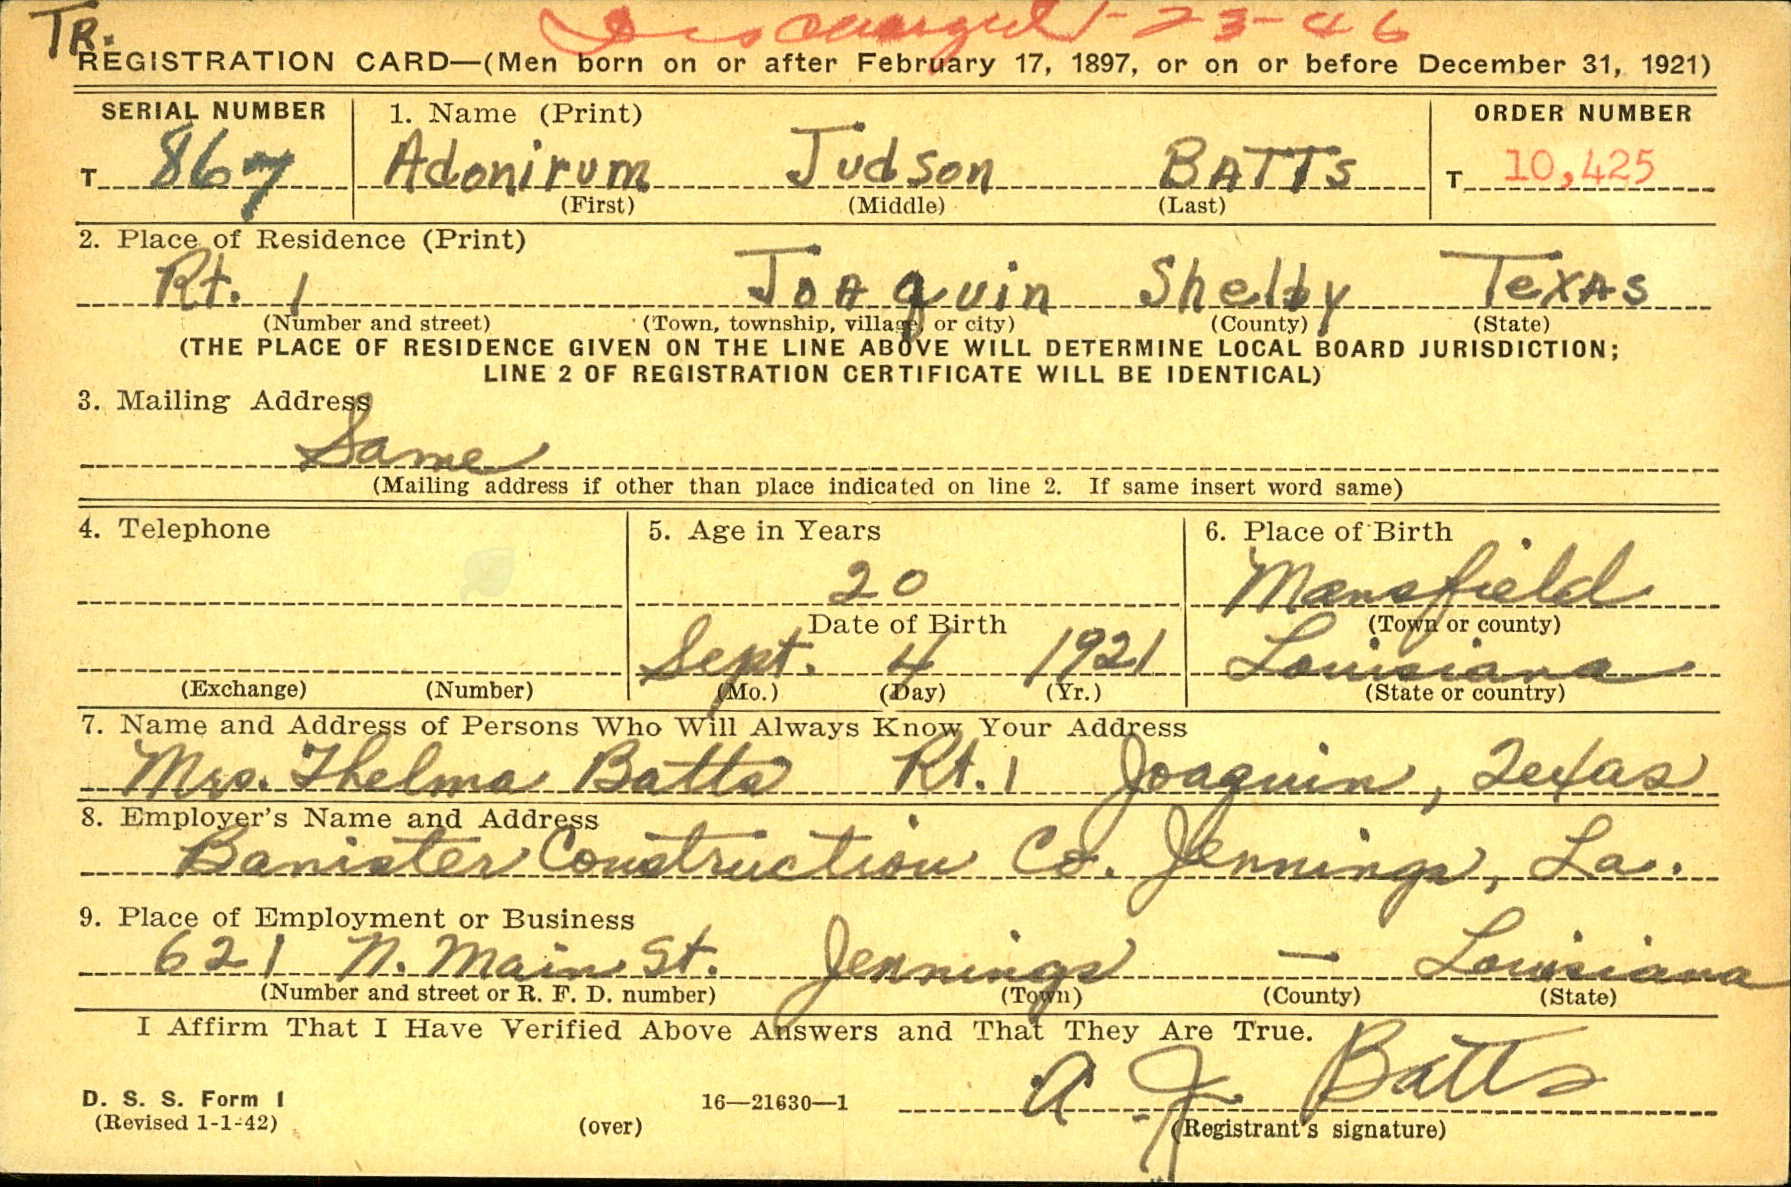 TR. Discharged 1-23-46
REGISTRATION CARD—(Men born on or after February 17, 1897, or on or before December 31, 1921)
SERIAL NUMBER 1. Name (Print) ORDER NUMBER
T 867 Adonirum Judson BATTS T 10,425
(First) (Middle) (Last)
2. Place of Residence (Print)
Rt. 1 JOAquin Shelby TexAs
(Number and street) (Town, township, village, or city) (County) (State)
(THE PLACE OF RESIDENCE GIVEN ON THE LINE ABOVE WILL DETERMINE LOCAL BOARD JURISDICTION;
LINE 2 OF REGISTRATION CERTIFICATE WILL BE IDENTICAL)
3. Mailing Address
Same
(Mailing address if other than place indicated on line 2. If same insert word same)
4. Telephone 5. Age in Years 6. Place of Birth
20 Mansfield
Date of Birth (Town or county)
Sept. 4 1921 Louisiana
(Exchange) (Number) (Mo.) (Day) (Yr.) (State or country)
7. Name and Address of Persons Who Will Always Know Your Address
Mrs. Thelma Batts Rt. 1 Joaquin, Texas
8. Employer's Name and Address
Banister Construction Co. Jennings, La.
9. Place of Employment or Business
621 N. Main St. Jennings — Louisiana
(Number and street or R. F. D. number) (Town) (County) (State)
I Affirm That I Have Verified Above Answers and That They Are True.
A. J. Batts
D. S. S. Form 1 16—21630—1
(Revised 1-1-42) (over) (Registrant's signature)